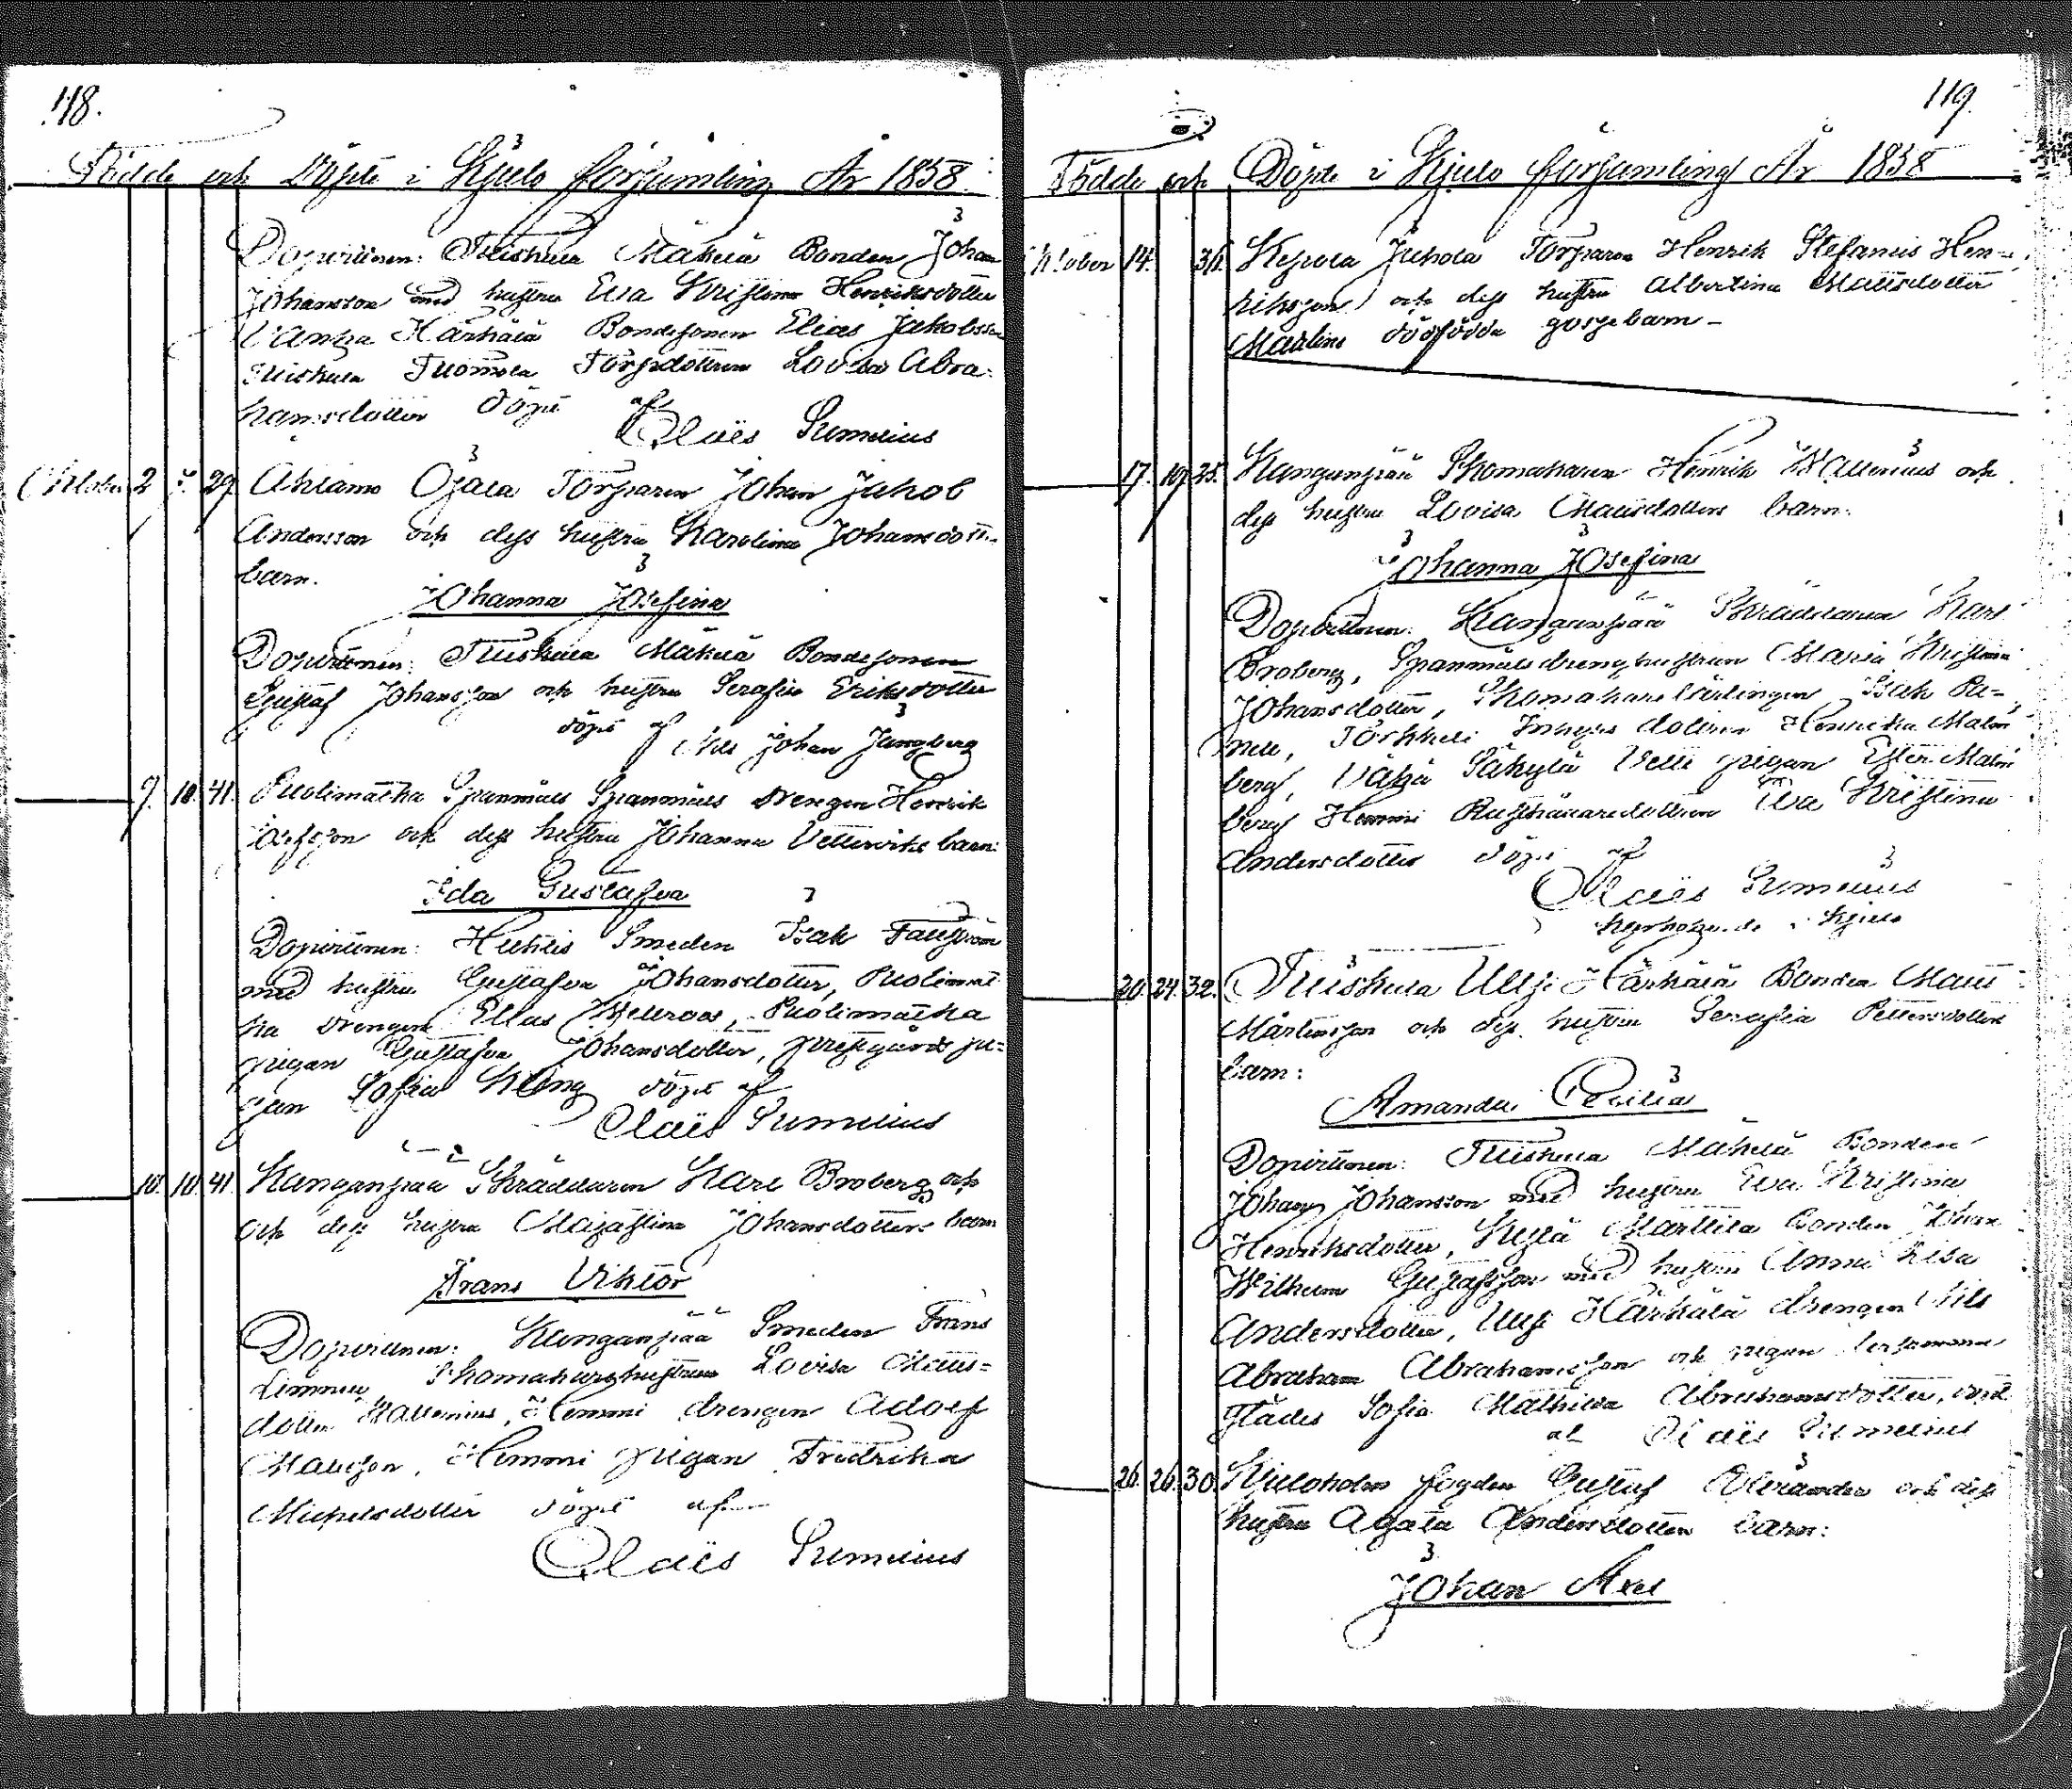 118.
Födde och Döpte i Kjulo församling År 1858.
Dopvittnen: Tuiskula Mäkilä Bonden Johan
Johansson med hustru Eva Kristina Henriksdotter
Härkälä Bondesonen Elias Jakobsson
Tuiskula Tuomola Torpdottren Lovisa Abra-
hamsdotter döpt af
Claës Sumelius
October 2 29 Ahlamo Ojala Torparen Johan Jakob
Andersson och dess hustru Karolina Johansdotters
barn.
Johanna Josefina
Dopvittnen: Tuiskula Mäkilä Bondesonen
Gustaf Johansson och hustru Serafia Eriksdotter
döpt af Nils Johan Ljungberg
9. 10. 41. Puolimatka Spanmäls Spanmäls drengen Henrik
och dess hustru Johanna barn:
Ida Gustafva
Dopvittnen: Smeden Isak
med hustru Gustafva Johansdotter, Puolimat-
ka drengen Puolimatka
pigan Gustafva Johansdotter, prestgårds pi-
gan Sofia Kling döpt af
Claës Sumelius
10. 10. 41. Kanganpää Skräddaren Karl Broberg och
och dess hustru Majastina Johansdotters barn
Frans Viktor
Dopvittnen: Kanganpää Smeden Frans
Skomakarehustrun Lovisa Matts-
dotter Wallenius, Hemmi drengen Adolf
Mattsson, Hemmi pigan Fredrika
Michelsdotter döpt af
Claës Sumelius
119.
Födde och Döpte i Kjulo församling År 1858
October 14. 36. Kepola Juhola Torparen Henrik Stefanus Hen-
riksson och dess hustru Albertina Mattsdotter
dödfödda gossebarn –
17. 19. 25. Kanganpää Skomakaren Henrik Wallenius och
dess hustru Lovisa Mattsdotters barn:
Johanna Josefina
Dopvittnen: Kanganpää Skräddaren Karl
Broberg, Spanmäls drenghustrun Maria Kristina
Johansdotter, Skomakare Lärlingen Isak
Inhyses dottren Henrika Malm-
berg, Vähä Säkylä Velli pigan Ester Malm-
berg Hemmi Rusthållaredottren Eva Kristina
Andersdotter döpt af
Claës Sumelius
kyrkoherde i Kjulo
20. 24. 32. Tuiskula Ulli Härkälä Bonden Matts
Mårtensson och dess hustru Serafia Pettersdotters
barn:
Amanda Cecilia
Dopvittnen: Tuiskula Mäkilä Bonden
Johan Johansson med hustru Eva Kristina
Henriksdotter, Marttila Bonden Johan
Wilhelm Gustafsson med hustru Anna Lisa
Andersdotter, Ulli Härkälä drengen Nils
Abraham Abrahamsson och pigan
Sofia Mathilda Abrahamsdotter, döpt
af Claës Sumelius
26. 26. 30. Kjuloholm fogden Gustaf Alexander och dess
hustru Agata Andersdotters barn:
Johan Axel